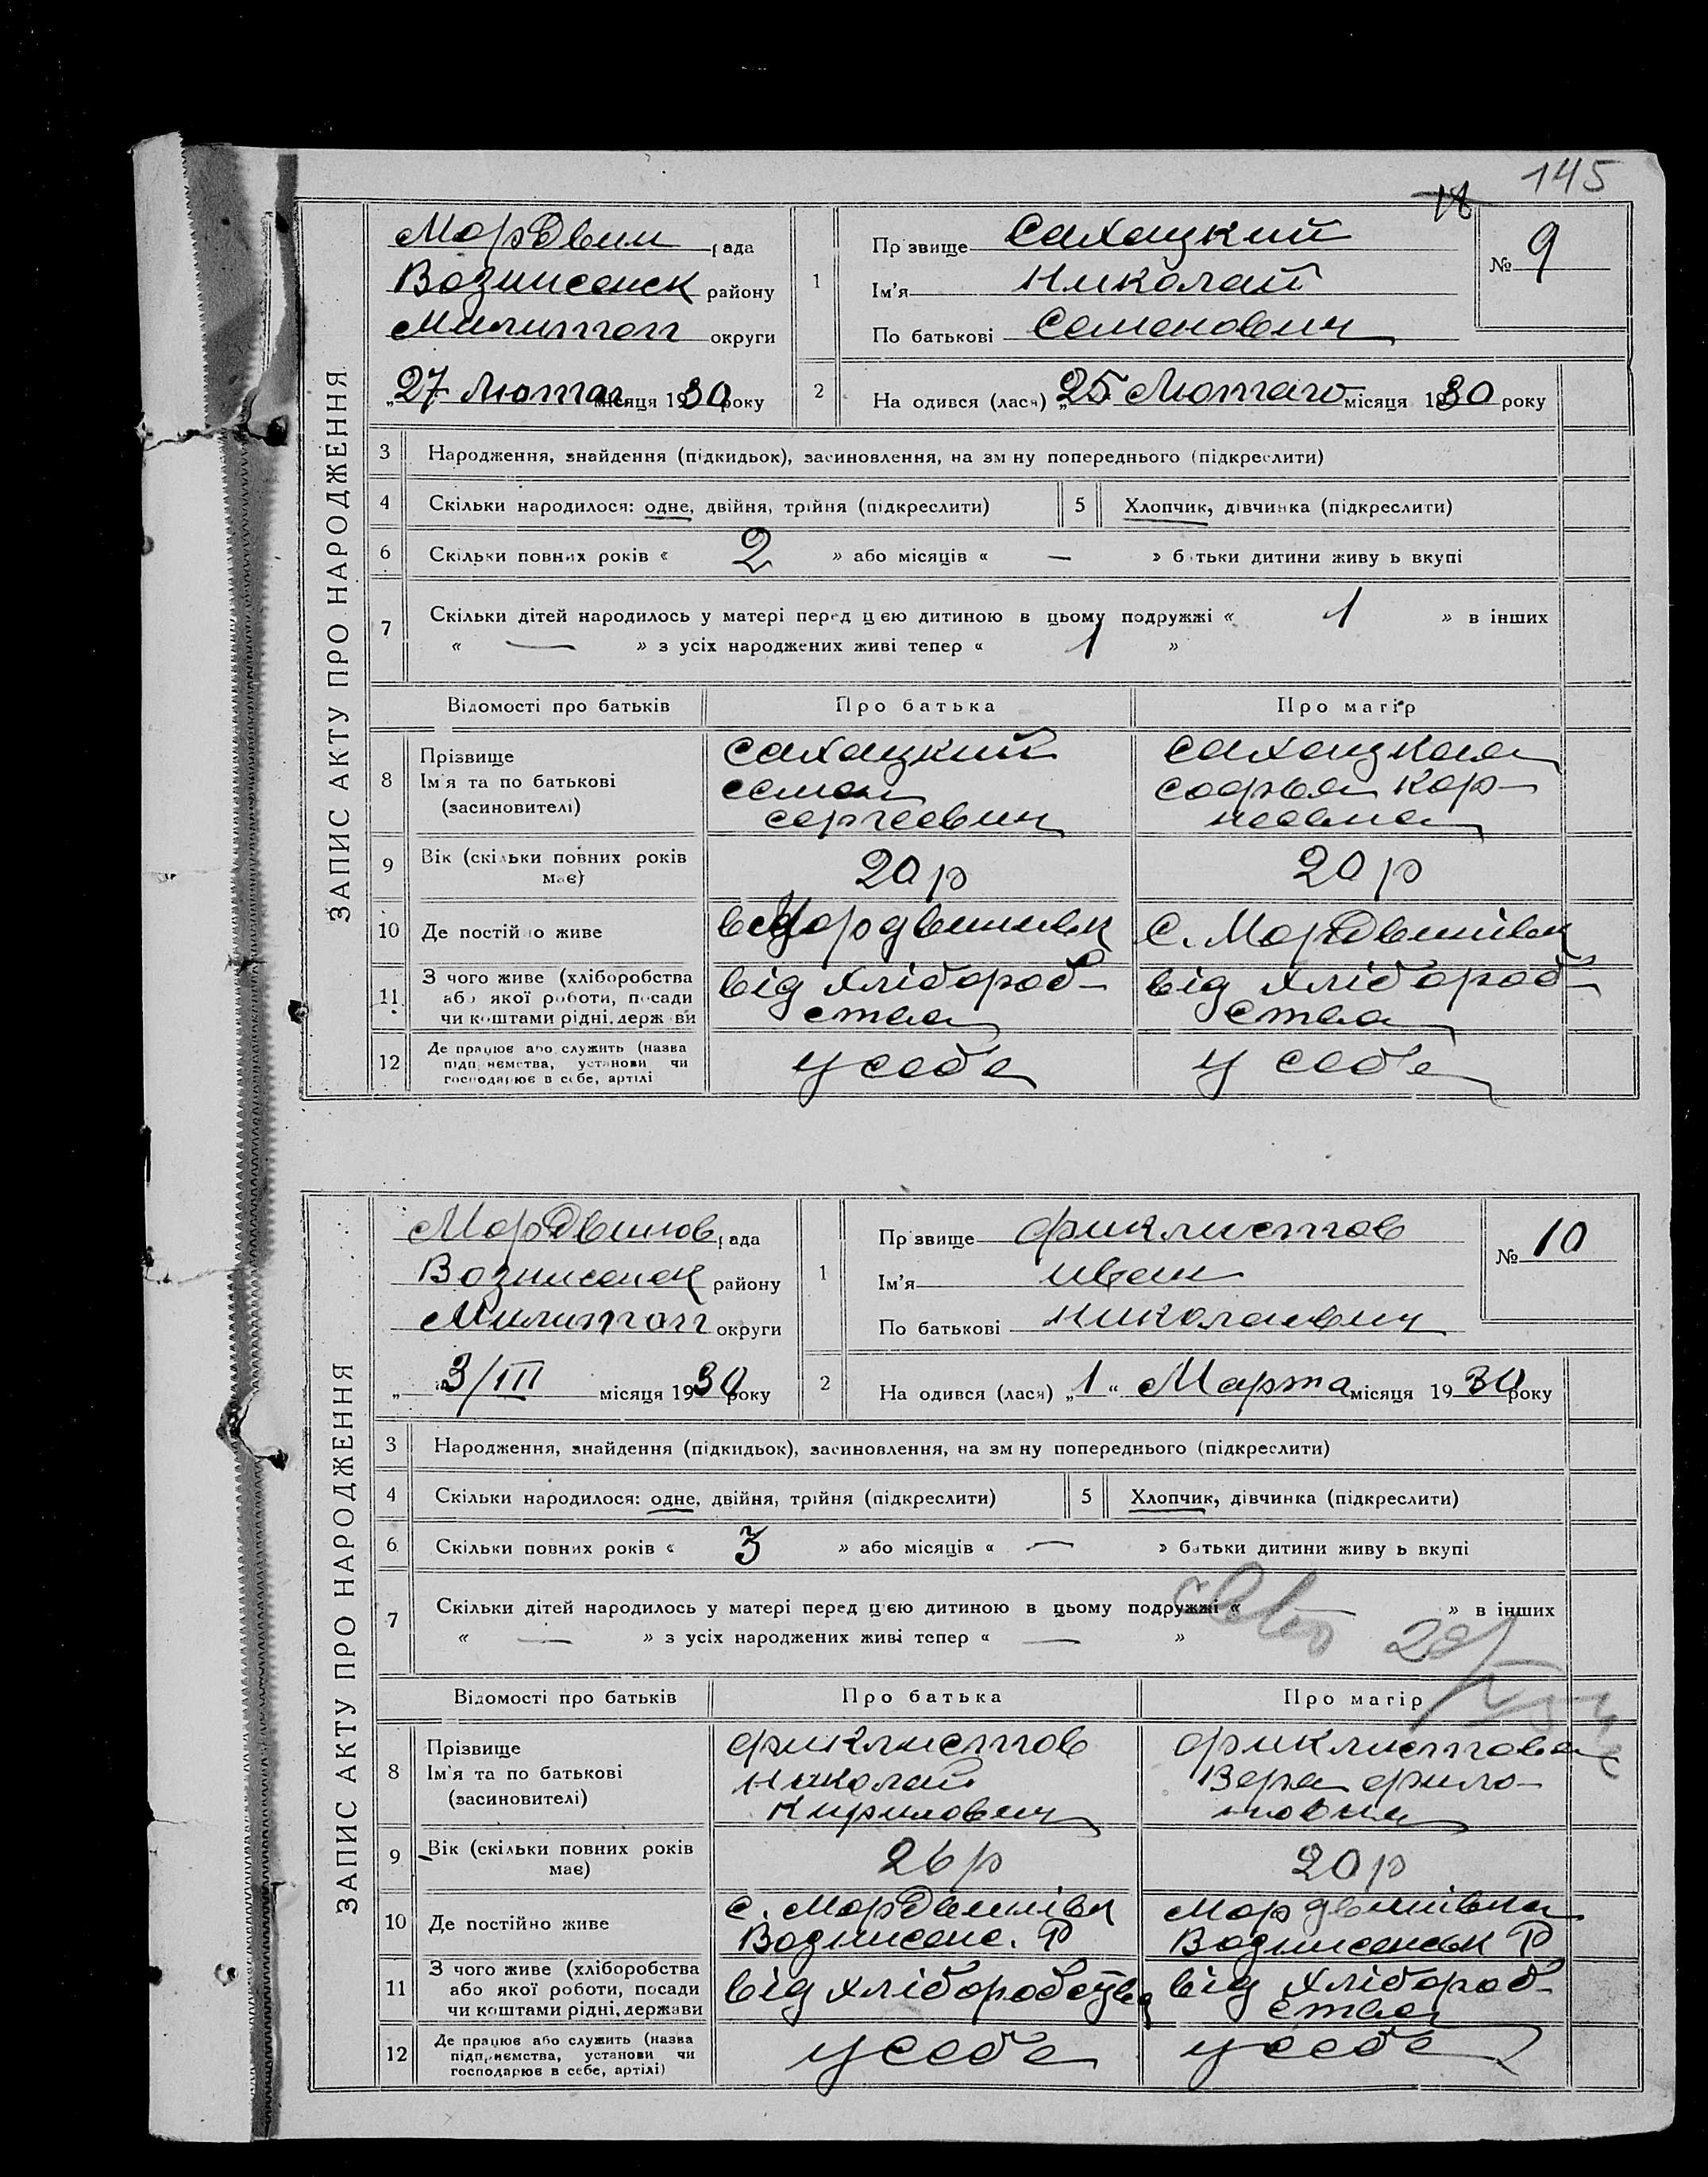 145
18
ЗАПИС АКТУ ПРО НАРОДЖЕННЯ
Мордвин рада
Вознисенск району
Милитоп округи
„27 Лютаго місяця 1930 року
1
Прізвище Сахацкий
Ім'я Николай
По батькові Семенович
№ 9
2
Народився (лася) „25 Лютаго місяця 1930 року
3 Народження, знайдення (підкидьок), засиновлення, на зміну попереднього (підкреслити)
4 Скільки народилося: одне, двійня, трійня (підкреслити)
5 Хлопчик, дівчинка (підкреслити)
6 Скільки повних років « 2 » або місяців « — » батьки дитини живуть вкупі
7 Скільки дітей народилось у матері перед цією дитиною в цьому подружжі « 1 » в інших
« — » з усіх народжених живі тепер « 1 »
Відомості про батьків
Про батька
Про матір
8
Прізвище
Ім'я та по батькові
(засиновителі)
Сахацкий
Семен
Сергеевич
Сахацкая
Софья Кор-
неевна
9
Вік (скільки повних років
має)
20 р
20 р
10 Де постійно живе
Мордвинивк
С. Мордвинівк
11
З чого живе (хліборобства
або якої роботи, посади
чи коштами рідні, держави
від хлібороб-
ства
від хлібороб-
ства
12
Де працює або служить (назва
підприємства, установи чи
господарює в себе, артілі
у себе
у себе
ЗАПИС АКТУ ПРО НАРОДЖЕННЯ
Мордвинов рада
Вознисенск району
Милитоп округи
„ 3/III місяця 1930 року
1
Прізвище Фиклистов
Ім'я Иван
По батькові Николаевич
№ 10
2
Народився (лася) „1“ Марта місяця 1930 року
3 Народження, знайдення (підкидьок), засиновлення, на зміну попереднього (підкреслити)
4 Скільки народилося: одне, двійня, трійня (підкреслити)
5 Хлопчик, дівчинка (підкреслити)
6 Скільки повних років « 3 » або місяців « — » батьки дитини живуть вкупі
7 Скільки дітей народилось у матері перед цією дитиною в цьому подружжі « — » в інших
« — » з усіх народжених живі тепер « — »
Відомості про батьків
Про батька
Про матір
8
Прізвище
Ім'я та по батькові
(засиновителі)
Фиклистов
Николай
Кирилович
Фиклистова
Вера
9
Вік (скільки повних років
має)
26 р
20 р
10 Де постійно живе
С. Мордвинівк
Вознисенс. Р
Мордвинівка
Вознисенськ Р
11
З чого живе (хліборобства
або якої роботи, посади
чи коштами рідні, держави
від хліборобства
від хлібороб-
ства
12
Де працює або служить (назва
підприємства, установи чи
господарює в себе, артілі)
у себе
у себе